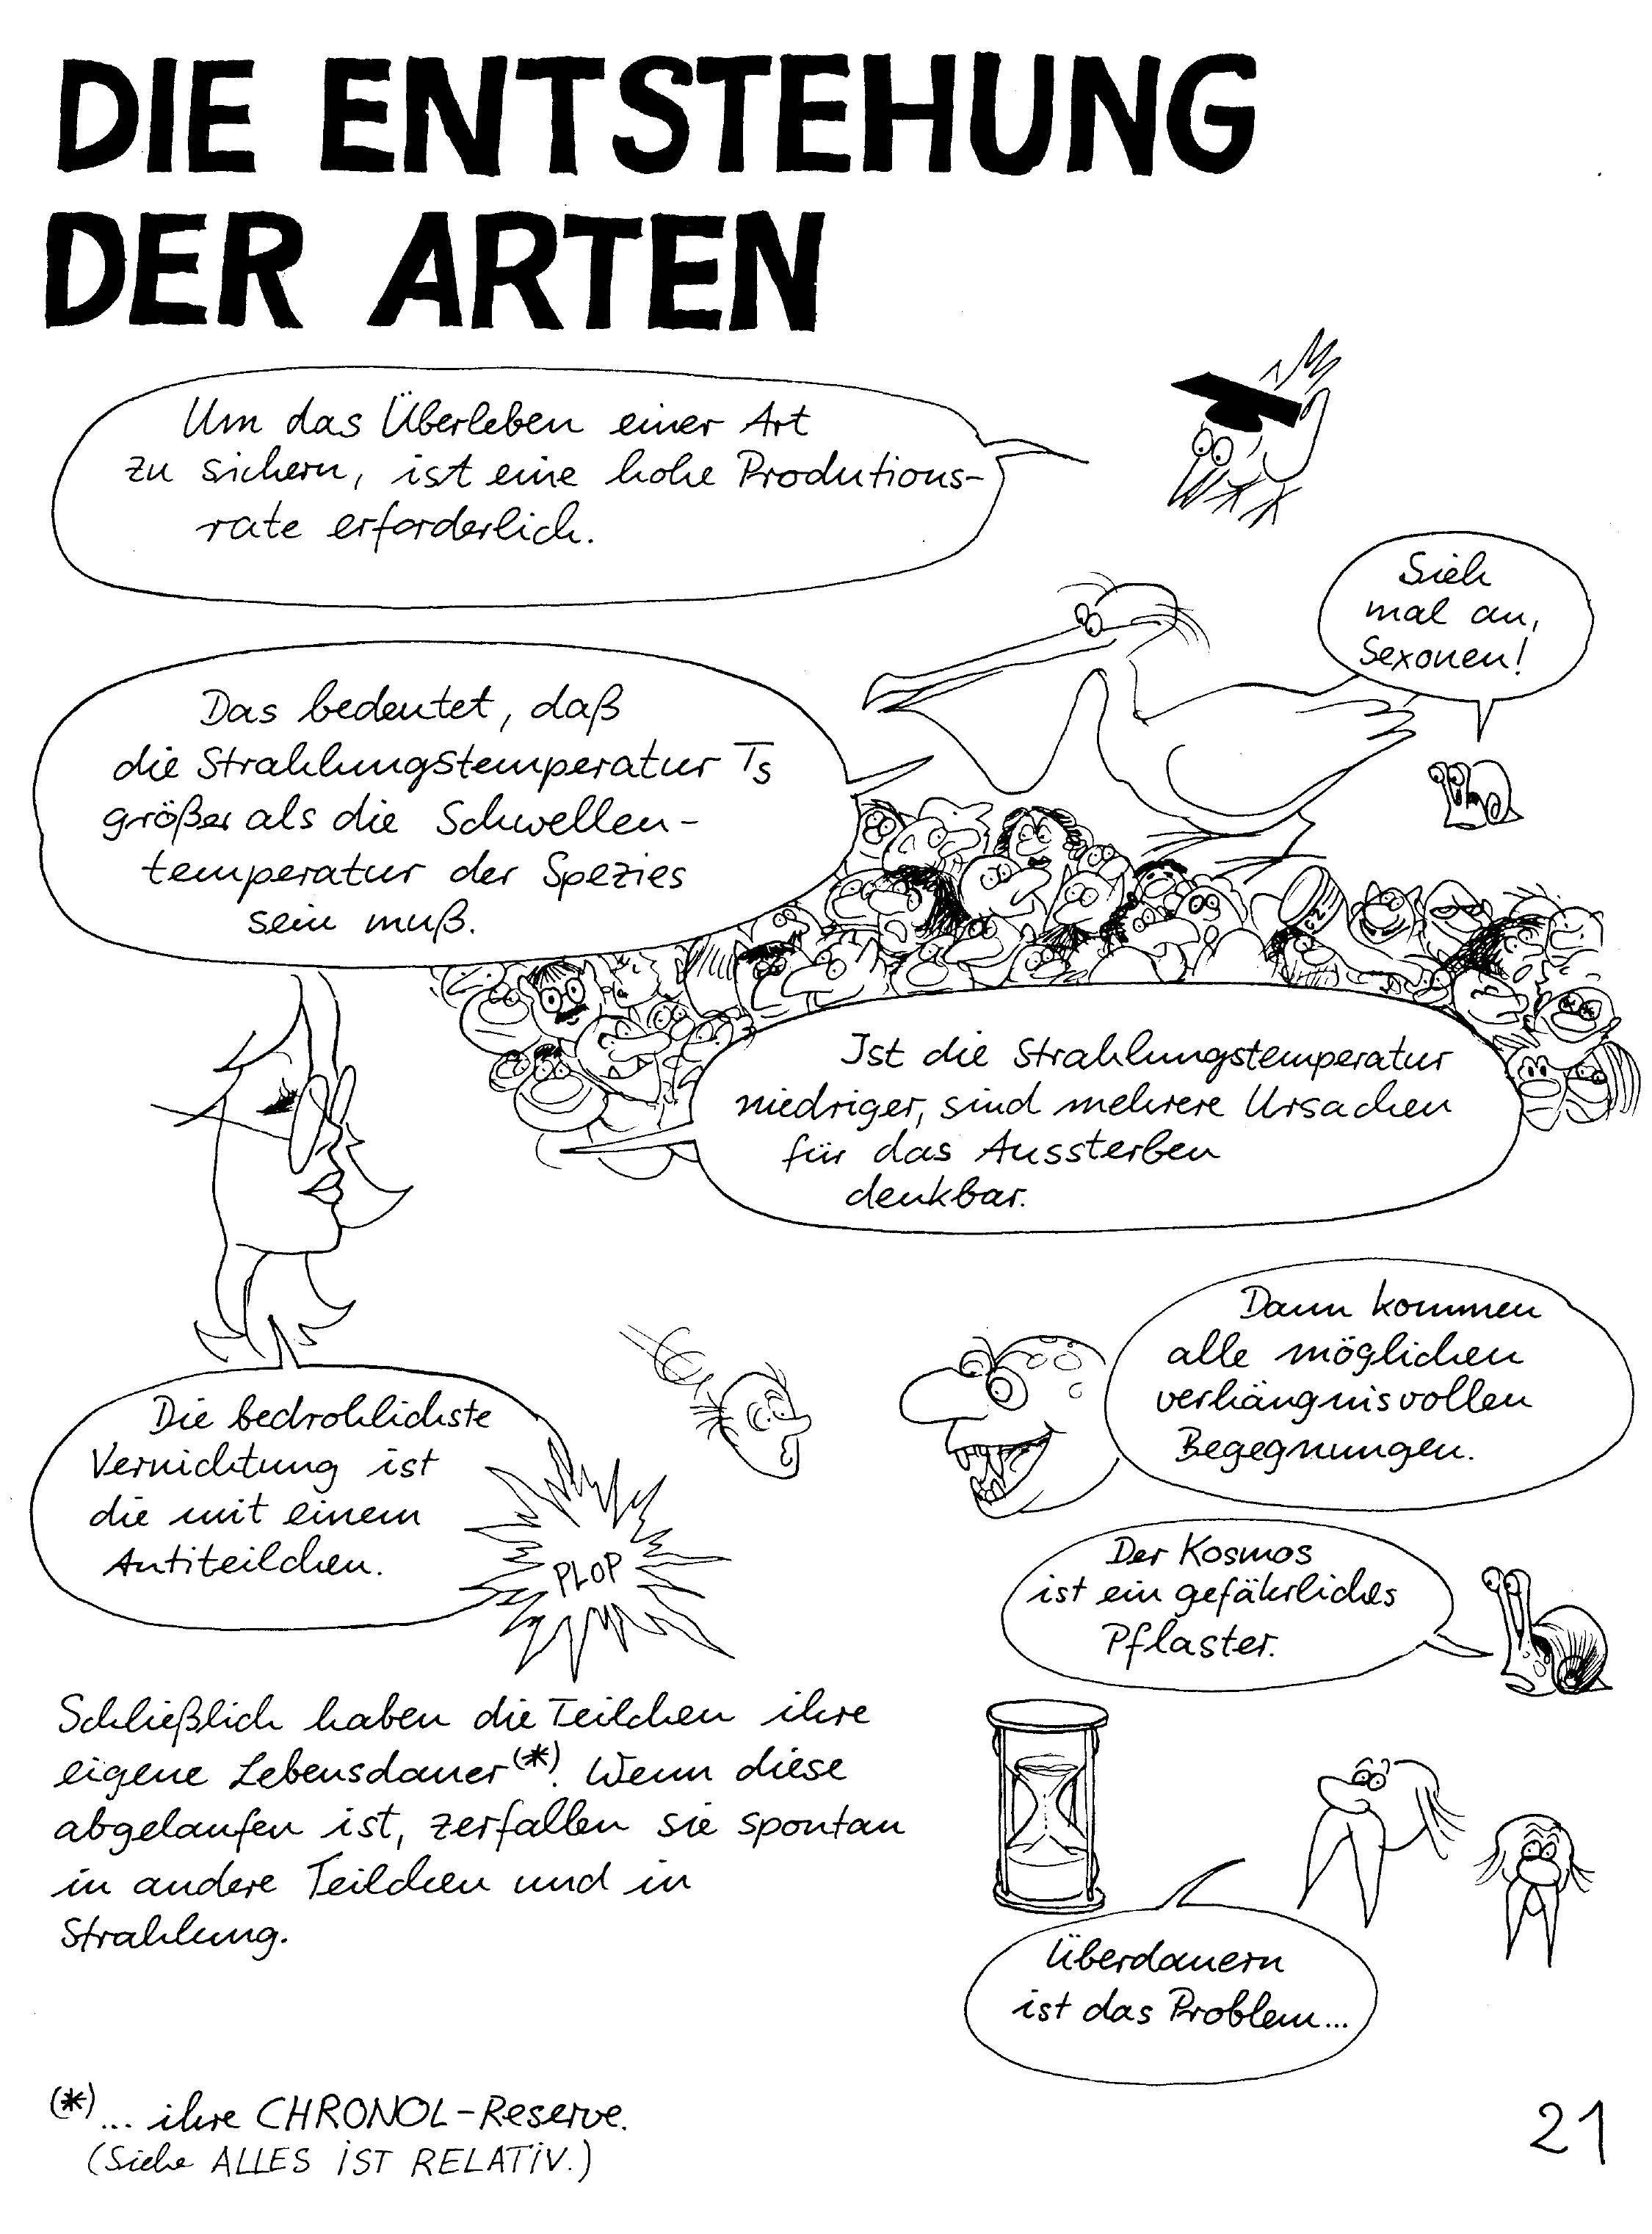 DIE ENTSTEHUNG
DER ARTEN
Um das Überleben einer Art
zu sichern, ist eine hohe Produtions-
rate erforderlich.
Sieh
mal an,
Sexonen!
Das bedeutet, daß
die Strahlungstemperatur Ts
größer als die Schwellen-
temperatur der Spezies
sein muß.
Ist die Strahlungstemperatur
niedriger, sind mehrere Ursachen
für das Aussterben
denkbar.
Dann kommen
alle möglichen
verhängnisvollen
Begegnungen.
Die bedrohlichste
Vernichtung ist
die mit einem
Antiteilchen.
PLOP
Der Kosmos
ist ein gefährliches
Pflaster.
Schließlich haben die Teilchen ihre
eigene Lebensdauer(*). Wenn diese
abgelaufen ist, zerfallen sie spontan
in andere Teilchen und in
Strahlung.
Überdauern
ist das Problem...
(*)... ihre CHRONOL-Reserve.
(Siehe ALLES iST RELATiV.)
21